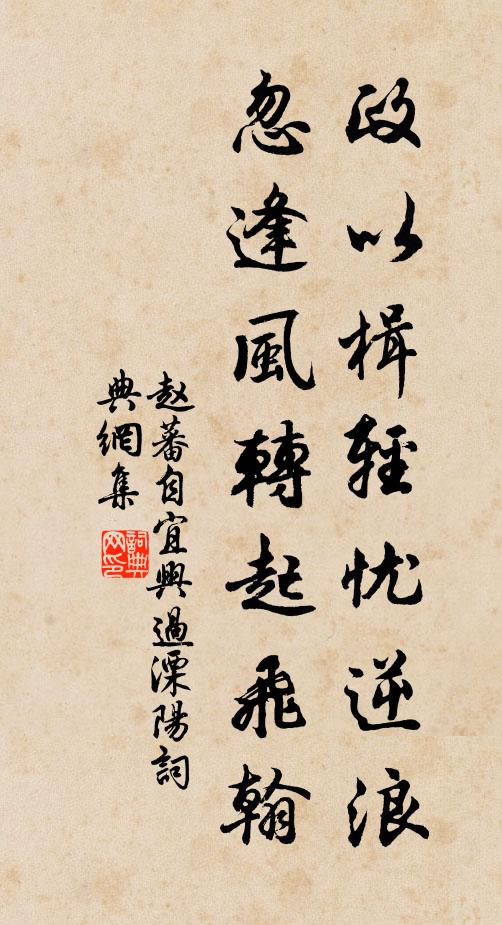 政以楫輕忧逆浪
忽逢風轉起飛翰
赵蕃自宜興過溧陽詞
典網集
詞典
网印